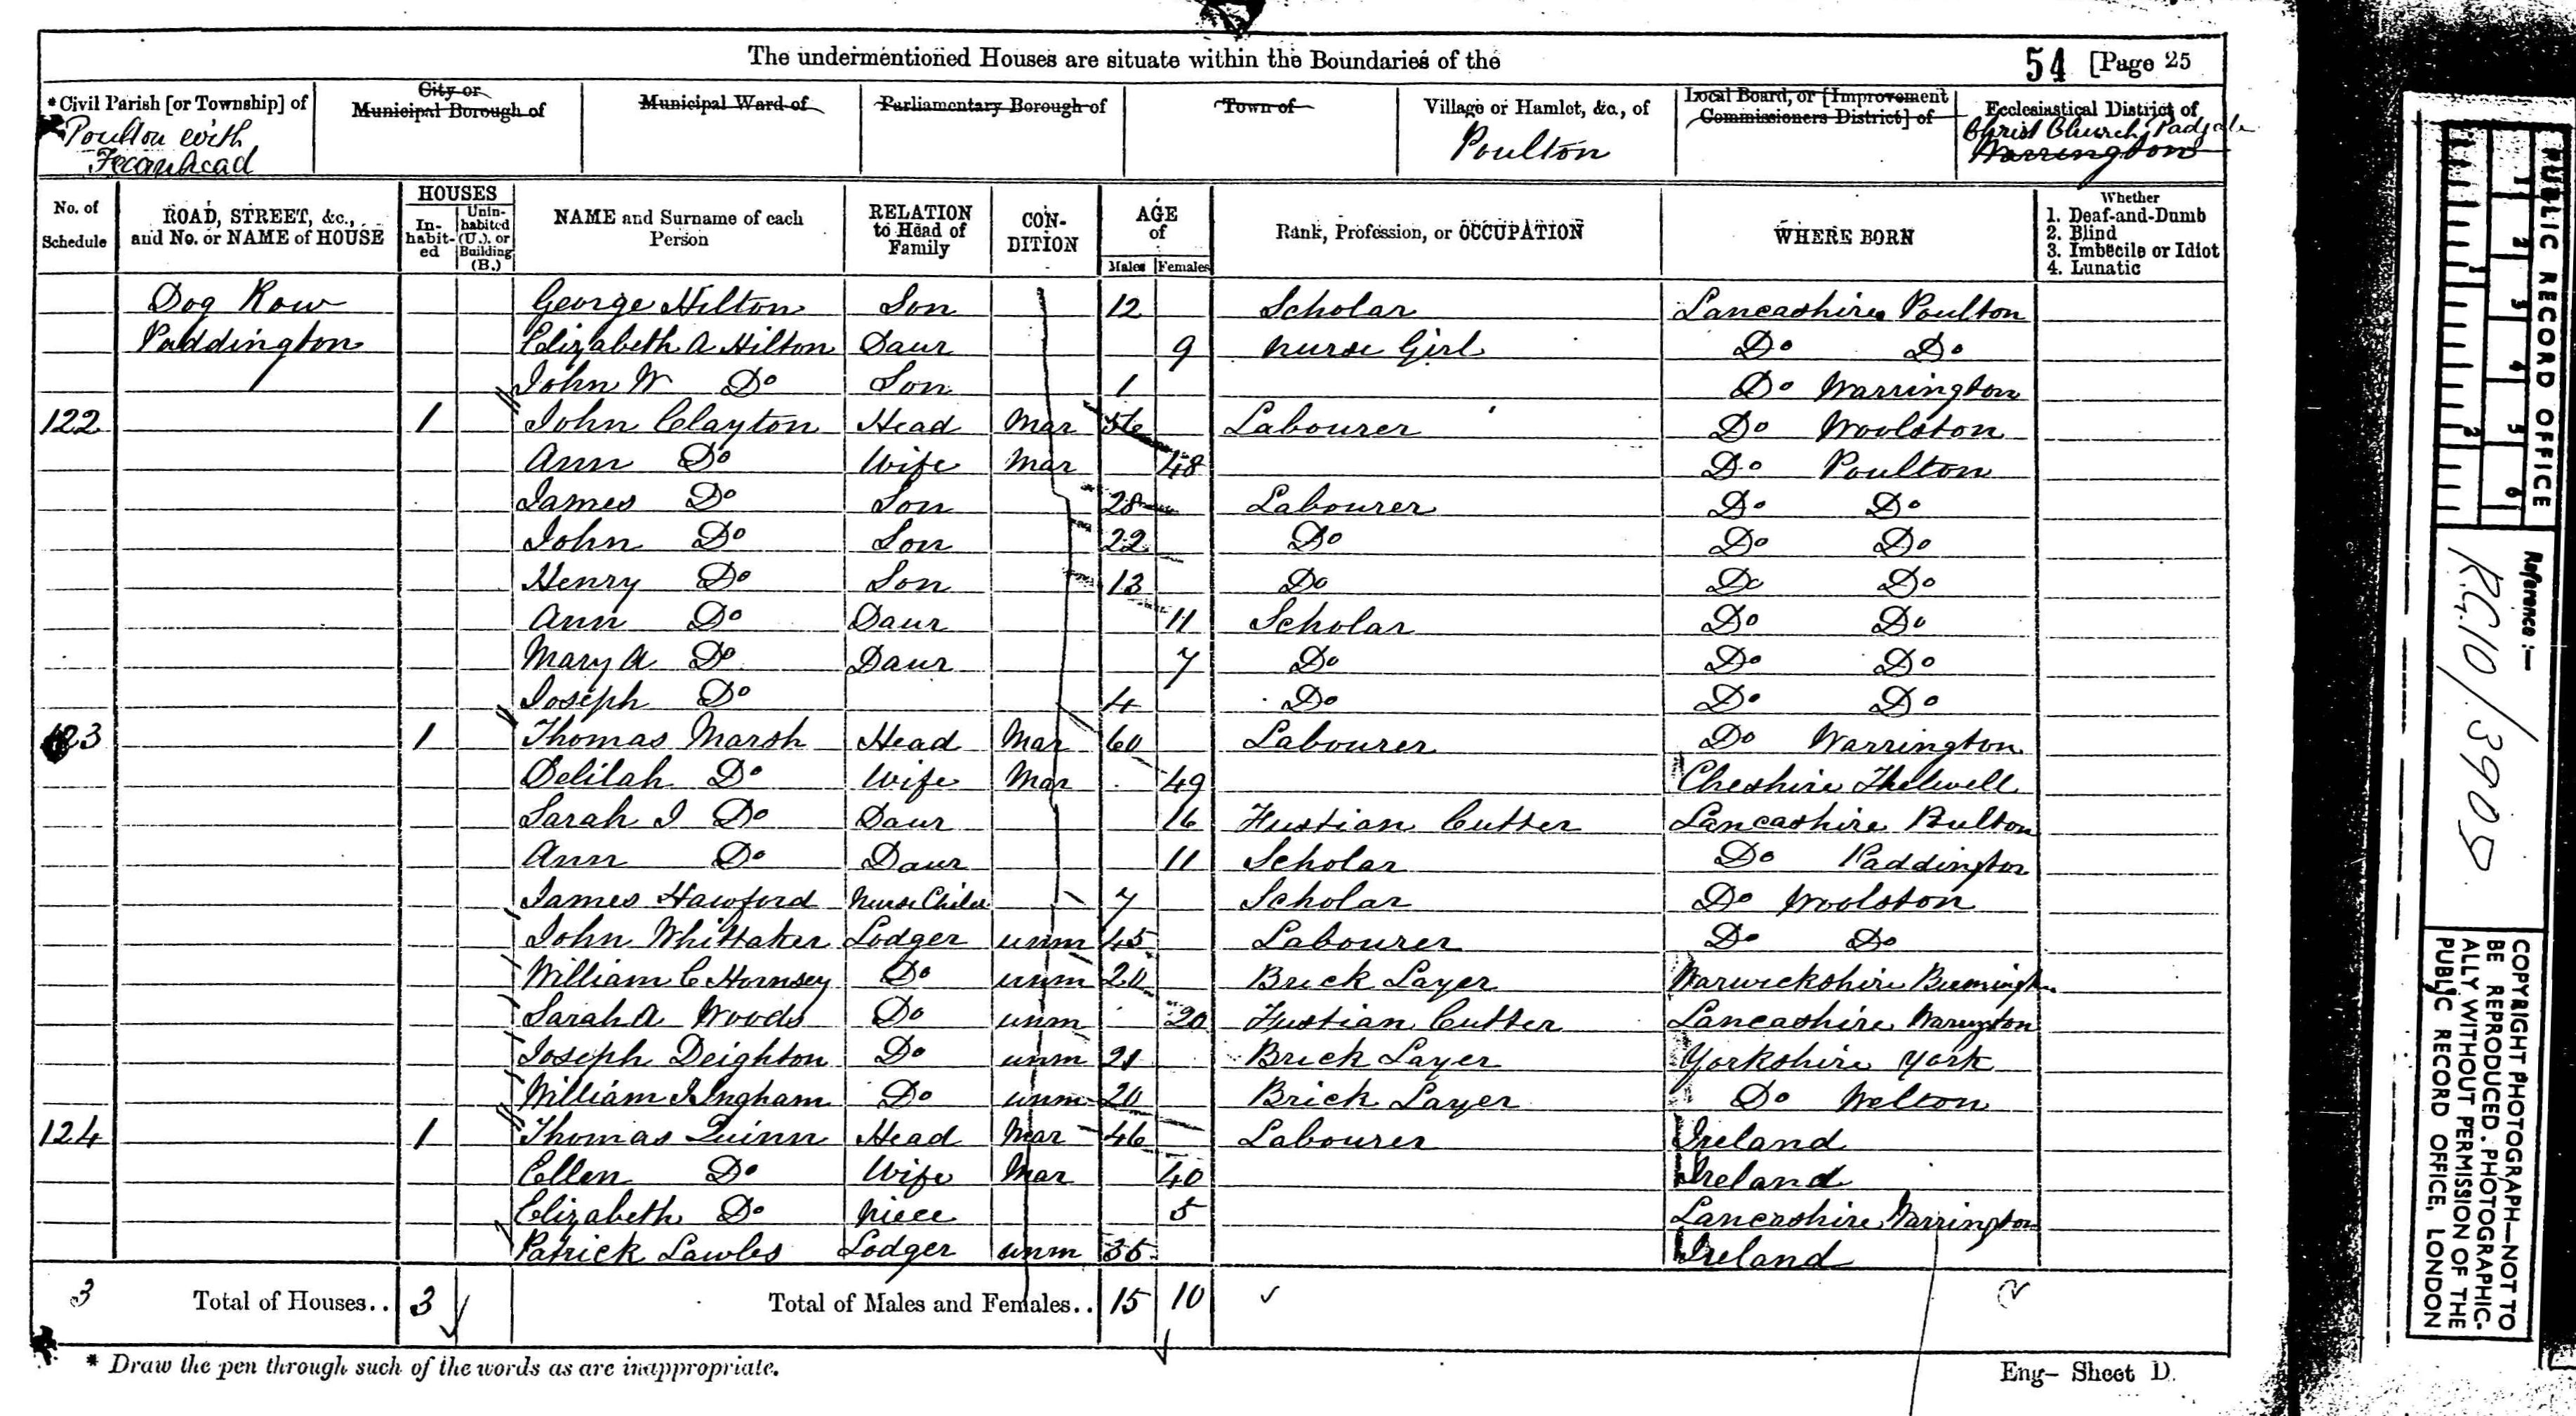 The undermentioned Houses are situate within the Boundaries of the 54 [Page 25
*Civil Parish [or Township] of City or Municipal Borough of Municipal Ward of Parliamentary Borough of Town of Village or Hamlet, &c., of Local Board, or [Improvement Commissioners District] of Ecclesiastical District of
Poulton with Fearnhead Poulton Christ Church Padgate Warrington
No. of Schedule ROAD, STREET, &c., and No. or NAME of HOUSE HOUSES Inhabited Uninhabited (U.), or Building (B.) NAME and Surname of each Person RELATION to Head of Family CONDITION AGE of Males Females Rank, Profession, or OCCUPATION WHERE BORN Whether 1. Deaf-and-Dumb 2. Blind 3. Imbecile or Idiot 4. Lunatic
Dog Row George Hilton Son 12 Scholar Lancashire Poulton
Paddington Elizabeth A Hilton Daur 9 Nurse Girl Do Do
John W Do Son 1 Do Warrington
122 1 John Clayton Head Mar 56 Labourer Do Woolston
Ann Do Wife Mar 48 Do Poulton
James Do Son 28 Labourer Do Do
John Do Son 22 Do Do Do
Henry Do Son 13 Do Do Do
Ann Do Daur 11 Scholar Do Do
Mary A Do Daur 7 Do Do Do
Joseph Do 4 Do Do Do
123 1 Thomas Marsh Head Mar 60 Labourer Do Warrington
Delilah Do Wife Mar 49 Cheshire Thelwell
Sarah J Do Daur 16 Fustian Cutter Lancashire Poulton
Ann Do Daur 11 Scholar Do Paddington
James Hawford Nurse Child 7 Scholar Do Woolston
John Whittaker Lodger unm 45 Labourer Do Do
William C Hornsey Do unm 20 Brick Layer Warwickshire
Sarah A Woods Do unm 20 Fustian Cutter Lancashire Warrington
Joseph Deighton Do unm 21 Brick Layer Yorkshire York
William J Ingham Do unm 20 Brick Layer Do Welton
124 1 Thomas Quinn Head Mar 46 Labourer Ireland
Ellen Do Wife Mar 40 Ireland
Elizabeth Do Niece 5 Lancashire Warrington
Patrick Lawles Lodger unm 35 Ireland
3 Total of Houses.. 3 Total of Males and Females.. 15 10
* Draw the pen through such of the words as are inappropriate. Eng- Sheet D.
PUBLIC RECORD OFFICE
1 2 3 4 5 6
1 2
Reference :-
R.G.10/3905
COPYRIGHT PHOTOGRAPH—NOT TO
BE REPRODUCED PHOTOGRAPHIC-
ALLY WITHOUT PERMISSION OF THE
PUBLIC RECORD OFFICE, LONDON